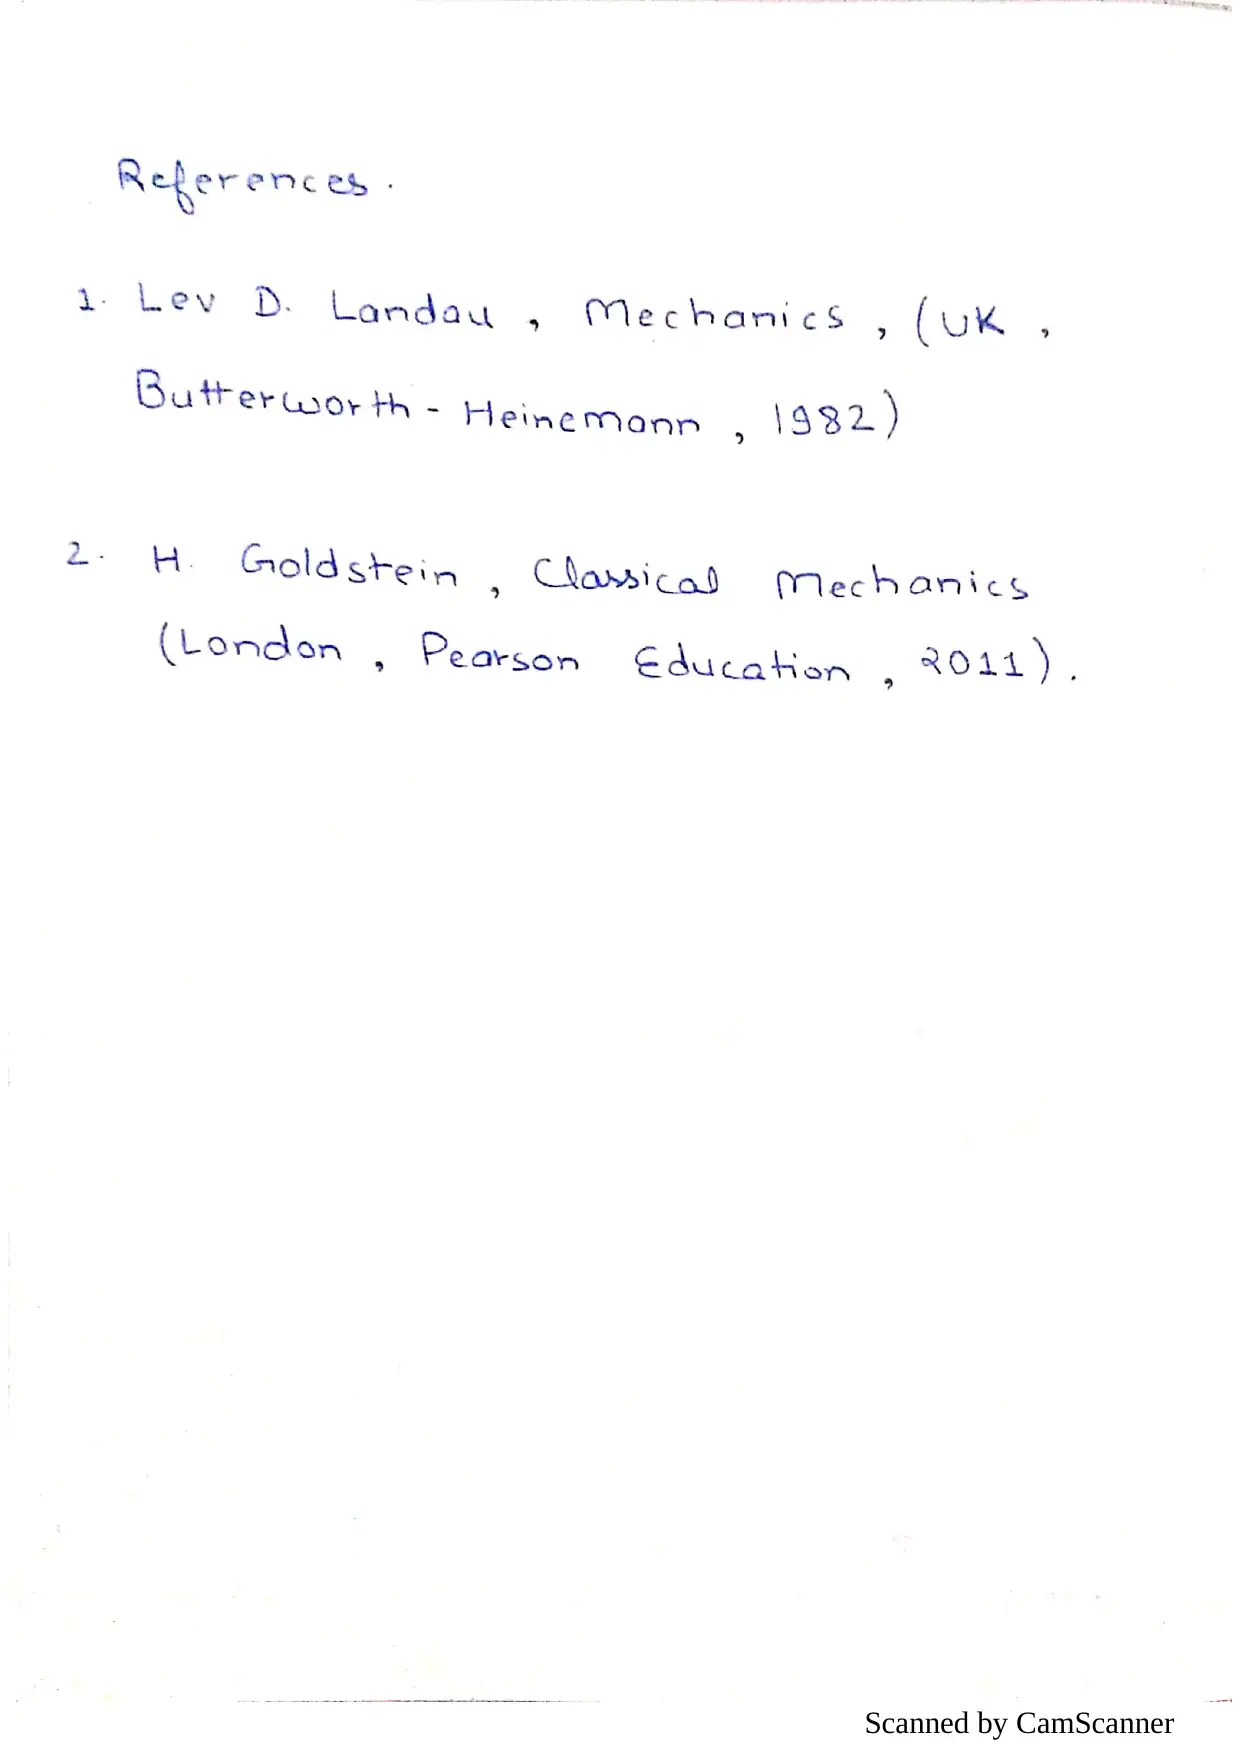 References.
1. Lev D. Landau, Mechanics, (UK,
Butterworth-Heinemann, 1982)
2. H. Goldstein, Classical Mechanics
(London, Pearson Education, 2011).
Scanned by CamScanner